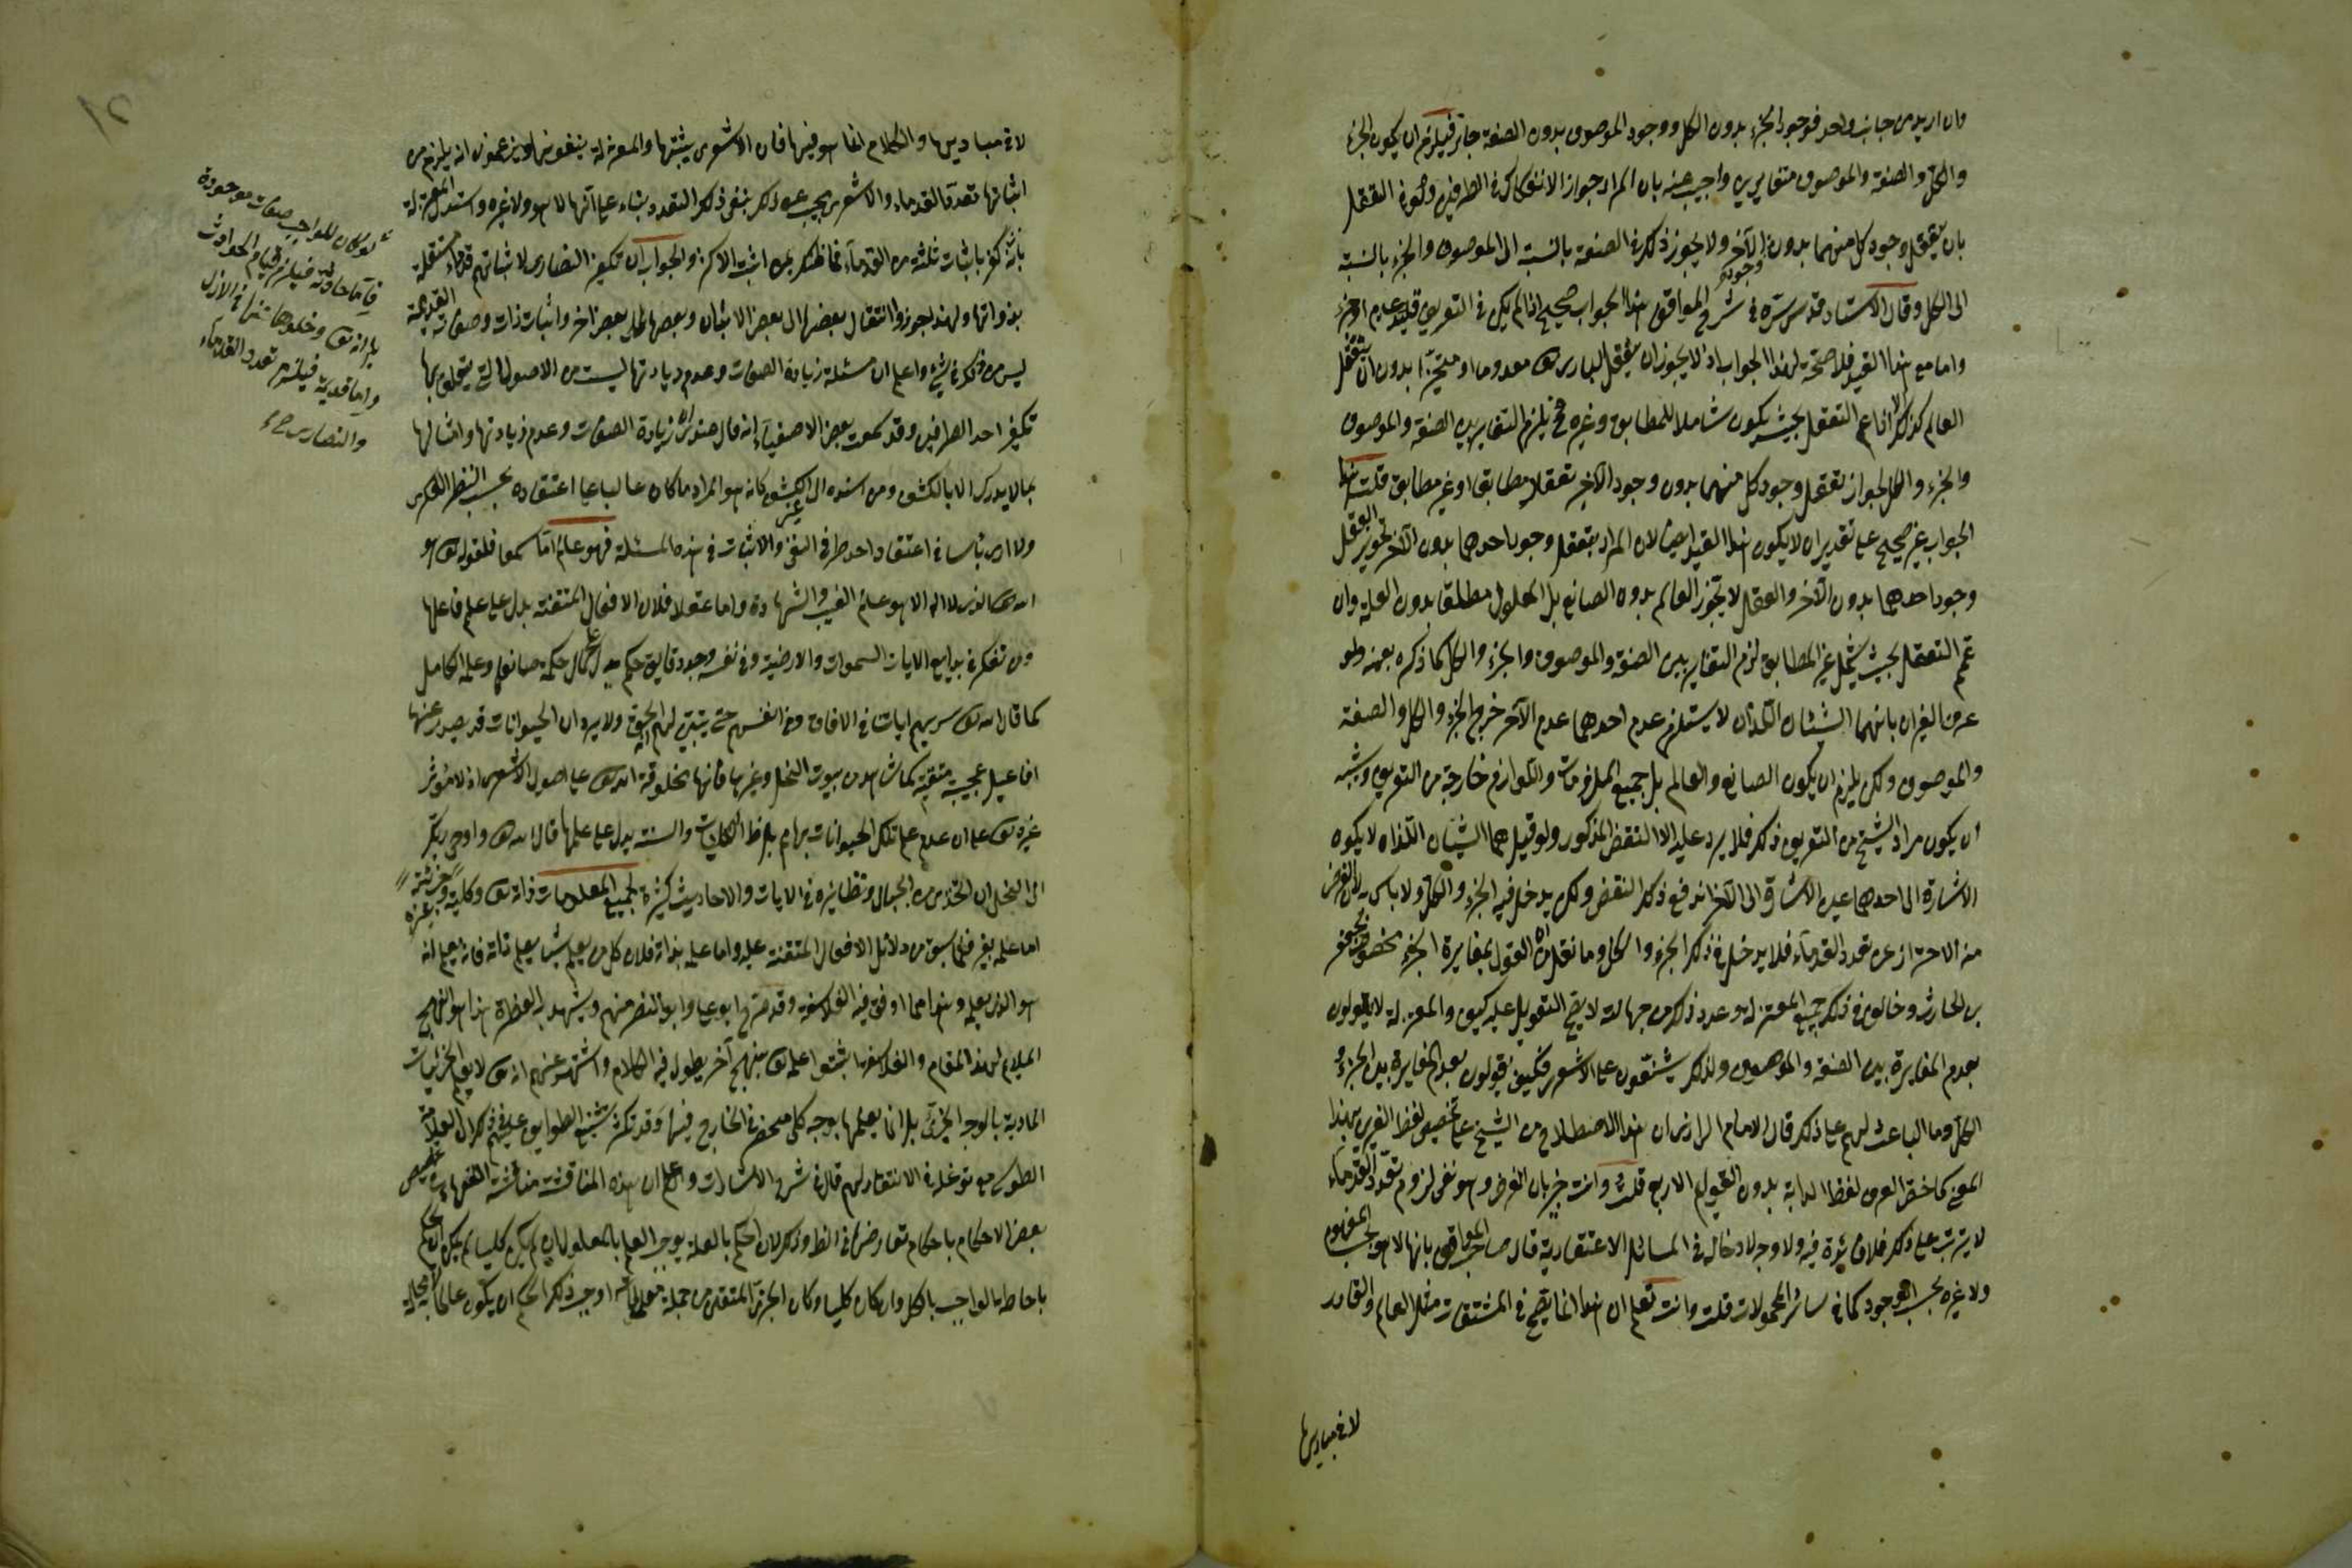 وان اريد من جانب واحد فوجود الجزء بدون الكل ووجود الموصوف بدون الصفة جائز فيلزم ان يكون الجزء
والكل والصفة والموصوف متغايرين واجيب عنه بان المراد جواز الانفكاك من الطرفين وجوه التعقل
بان يتعقل وجود كل منهما بدون الآخر ولا يجوز ذلك في الصفة بالنسبة الى الموصوف والجزء بالنسبة
الى الكل وقال الاستاد قدس سره في شرح المواقف هذا الجواب صحيح اذا لم يكن في التعريف قيد عدم او حيز
واما مع هذا القيد فلا صحة لهذا الجواب اذ لا يجوز ان يتعقل الباري تعالى معدوما او متحيزا بدون ان يتعقل
العالم كذلك الا اذا عم التعقل بحيث يكون شاملا للمطابق وغيره فح يلزم التغاير بين الصفة والموصوف
والجزء والكل لجواز تعقل وجود كل منهما بدون وجود الآخر تعقلا مطابقا او غير مطابق قلت هذا
الجواب غير صحيح على تقدير ان لا يكون هذا القيد ايضا لان المراد بتعقل وجود احدهما بدون الآخر تجويز العقل
وجود احدهما بدون الآخر والعقل لا يجوز العالم بدون الصانع بل المعلول مطلقا بدون العلة وان
عمم التعقل بحيث يشمل غير المطابق لزم التغاير بين الصفة والموصوف والجزء والكل كما ذكره بعينه ولو
عرف الغيران بانهما الشيئان اللذان لا يستلزم عدم احدهما عدم الآخر خرج الجزء والكل والصفة
والموصوف ولكن يلزم ان يكون الصانع والعالم بل جميع الملزومات واللوازم خارجة من التعريف ويشبه
ان يكون مراد الشيخ من التعريف ذلك فلا يرد عليه الا النقض المذكور ولو قيل هما الشيئان اللذان لا يكون
الاشارة الى احدهما عين الاشارة الى الآخر اندفع ذلك النقض ولكن يدخل فيه الجزء والكل ولا باس به لان الغرض
منه الاحتراز عن تعدد القدماء فلا يدخل في ذلك الجزء والكل وما نقل ان القول بمغايرة الجزء مخصوص بجعفر
بن الحارث وخالف في ذلك جميع المعتزلة وعدد ذلك من جهالاته لا يصح التعويل عليه كيف والمعتزلة لا يقولون
بعدم المغايرة بين الصفة والموصوف ولذلك يشنعون على الاشعري فكيف يقولون بعدم المغايرة بين الجزء و
الكل وما الباعث لهم على ذلك قال الامام الرازي ان هذا الاصطلاح من الشيخ على تخصيص لفظ الغيرين بهذا
المعنى كما خص العرف لفظ الدابة بدون القوائم الاربع قلت وانت خبير بان الغرض وهو نفى لزوم تعدد القدماء
لا يترتب على ذلك فلا فائدة فيه ولا وجه لادخاله في المسائل الاعتقادية قال صاحب المواقف بانها لا هو بحسب المفهوم
ولا غيره بحسب الوجود كما في سائر المحمولات قلت وانت تعلم ان هذا انما يصح في المشتقات مثل العالم والقادر
لا في مباديها
لا في مباديها والكلام انما هو فيها فان الاشعري يثبتها والمعتزلة ينفونها ويزعمون انه يلزم من
اثباتها تعدد القدماء والاشعري يجيب عن ذلك بنفى ذلك التعدد بناء على انها لا هو ولا غيره واستدل المعتزلة
بانه كفر باثبات ثلثة من القدماء فما ظنك بمن اثبت الاكثر والجواب ان تكفير النصارى لاثباتهم قدماء مستقلة
بذواتها ولهذا يجوزوا انتقال بعضها الى بعض الابدان وبعضها الى بعض اخر واثبات ذات وصفات القديمة
ليس من ذلك في شيء واعلم ان مسئلة زيادة الصفات وعدم زيادتها ليست من الاصول التي يتعلق بها
تكفير احد الطرفين وقد سمعت بعض الاصفياء انه قال عندي ان زيادة الصفات وعدم زيادتها وامثالها
بما لا يدرك الا بالكشف ومن اسنده الى غير الكشف كانه هو المراد ما كان غالبا على اعتقاده بحسب النظر الفكري
ولا ارى باسا في اعتقاد احد طرفي النفى والاثبات في هذه المسئلة فهو عالم اما سمعا فلقوله تعالى هو
الله الذي لا اله الا هو عالم الغيب والشهادة واما عقلا فلان الافعال المتقنة يدل على علم فاعلها
ومن تفكر في بدايع الايات السموات والارضية وفي نفسه وجد دقايق حكم يدل على كمال حكمة صانعها وعلمه الكامل
كما قال الله تعالى سنريهم اياتنا في الافاق وفي انفسهم حتى يتبين لهم انه الحق ولا يرد ان الحيوانات قد يصدر عنها
افاعيل عجيبة متقنة كما نشاهد من بيوت النحل وغيرها فانها مخلوقة الله تعالى على اصول الاشعري اذ لا مؤثر
غيره تعالى على ان عدم علم تلك الحيوانات بها ممنوع بل ظاهر الكتاب والسنة يدل على علمها قال الله تعالى واوحى ربك
الى النحل ان اتخذي من الجبال ونظائره في الايات والاحاديث كثيرة لجميع المعلومات ذاته تعالى وكليته وجزئيته وغيره
اما علمه بغيره فلما سبق من دلائل الافعال المتقنة عليه واما علمه بذاته فلان كل من يعلم شيئا يعلم ذاته فانه يعلم انه
هو الذي يعلمه وهذا مما اوفق فيه الفلاسفة وقد صرح ابو علي وابو النصر منهم ويشهد به الفطرة هذا هو النهج
الملايم لهذا المقام والفلاسفة اثبتوا علمه تعالى بنهج آخر يطول فيه الكلام واشتهر عنهم انه تعالى لا يعلم الجزئيات
المادية بالوجه الجزئي بل انما يعلمها بوجه كلي منحصر في الخارج فيها وقد كثر تشنيع الطوايف عليهم في ذلك ال العلامة
الطوسي مع توغله في الانتصار لهم قال في شرح الاشارات واعلم ان هذه المناقشة مناقشة الفقهاء بتخصيص
بعض الاحكام باحكام تعارضها في الظاهر وذلك لان الحكم بالعلة يوجب العلم بالمعلول ان لم يكن كليا لم يكن الحكم
باحاطة الواجب بالكل وان كان كليا وكان الجزئي المتغير من جملة معلولاته اوجب ذلك الحكم ان يكون عالما به لا محالة
لو كان للواجب صفات موجودة
فاما حادثة فيلزم قيام الحوادث
بذاته تعالى وخلوها عنها في الازل
واما قديمة فيلزم تعدد القدماء
والنصارى